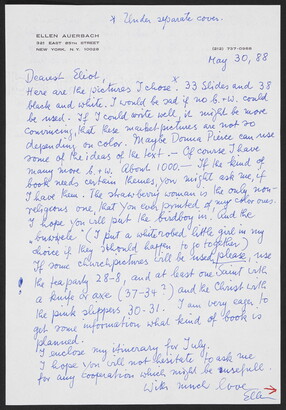 * Under separate cover.
ELLEN AUERBACH
321 EAST 85TH STREET
NEW YORK, N.Y. 10028
(212) 737-0966
May 30, 88
Dearest Eliot,
Here are the pictures I chose.* 33 Slides and 38
black and white. I would be sad if no b.+w. could
be used. If I could write well, it might be more
convincing, that these market pictures are not so
depending on color. Maybe Donna Pierce can use
some of the ideas of the text. — Of course I have
many more b.+w. About 1000. — If the kind of
book needs certain themes, you might ask me, if
I have them. The strawberry woman is the only non-
religious one, that you ever printed of my color ones.
I hope you will put the birdboy in. And the
(I put a white robed little girl in my
choice if they should happen to go together)
If some church pictures will be used, please, use
the tea party 28-8, and at least one Saint with
a knife or axe (37-34?) and the Christ with
the pink slippers 30-31. I am very eager to
get some information what kind of book is
planned.
I enclose my itinerary for July.
I hope you will not hesitate to ask me
for any cooperation which might be usefull.
With much love
Ella